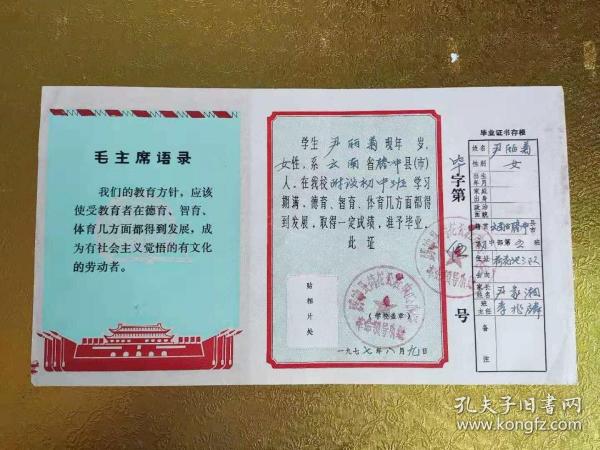 毛主席语录
我们的教育方针，应该
使受教育者在德育、智育、
体育几方面都得到发展，成
为有社会主义觉悟的有文化
的劳动者。
学生尹丽菊现年 岁，
女性，系云南省腾冲县(市)
人，在我校附设初中班学习
期满，德育、智育、体育几方面都得
到发展，取得一定成绩，准予毕业。
此证
贴相片处
（学校盖章）
一九七七年八月九日
毕字第
号
毕业证书存根
姓名 尹丽菊
性别 女
出生年月
家庭出身
政治面貌
籍贯 云南省腾冲县
中部第 班
住址
去向
家长姓名 尹家湘
班主任 李兆麟
备注
孔夫子旧书网
www.kongfz.com